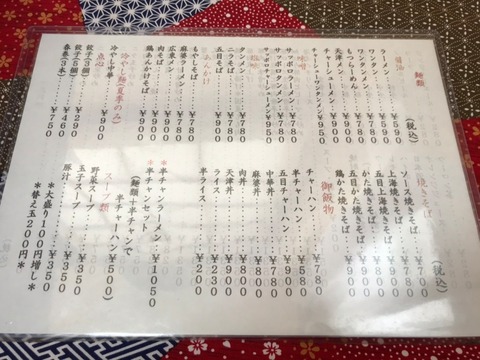 麺類 (税込)
醤油
ラーメン ¥590
ワンタン ¥590
ワンタンメン ¥780
もやしらーめん ¥780
天津メン ¥900
チャーシューメン ¥900
チャーシューワンタンメン ¥950
味噌
サッポロラーメン ¥780
サッポロタンメン ¥900
サッポロチャーシューメン ¥950
タンメン ¥780
ニラそば ¥780
五目そば ¥900
あんかけ
もやしそば ¥780
麻婆ラーメン ¥780
広東メン ¥900
肉そば ¥900
鶏あんかけそば ¥900
冷やし麺(夏季のみ)
冷やし中華 ¥900
点心
餃子(3個) ¥290
餃子(5個) ¥460
春巻(3本) ¥750
焼きそば (税込)
ソース焼きそば ¥780
上海焼きそば ¥780
五目上海焼きそば ¥900
かた焼きそば ¥800
五目かた焼きそば ¥900
鶏かた焼きそば ¥900
御飯物
チャーハン ¥780
半チャーハン ¥580
五目チャーハン ¥900
中華丼 ¥800
麻婆丼 ¥780
肉丼 ¥800
天津丼 ¥900
ライス ¥230
半ライス ¥200
*半チャンラーメン ¥1050
*半チャンセット
(麺類+半チャンで
半チャーハン¥500)
スープ類
野菜スープ ¥350
玉子スープ ¥350
豚汁 ¥350
*大盛り100円増し*
*替え玉200円*